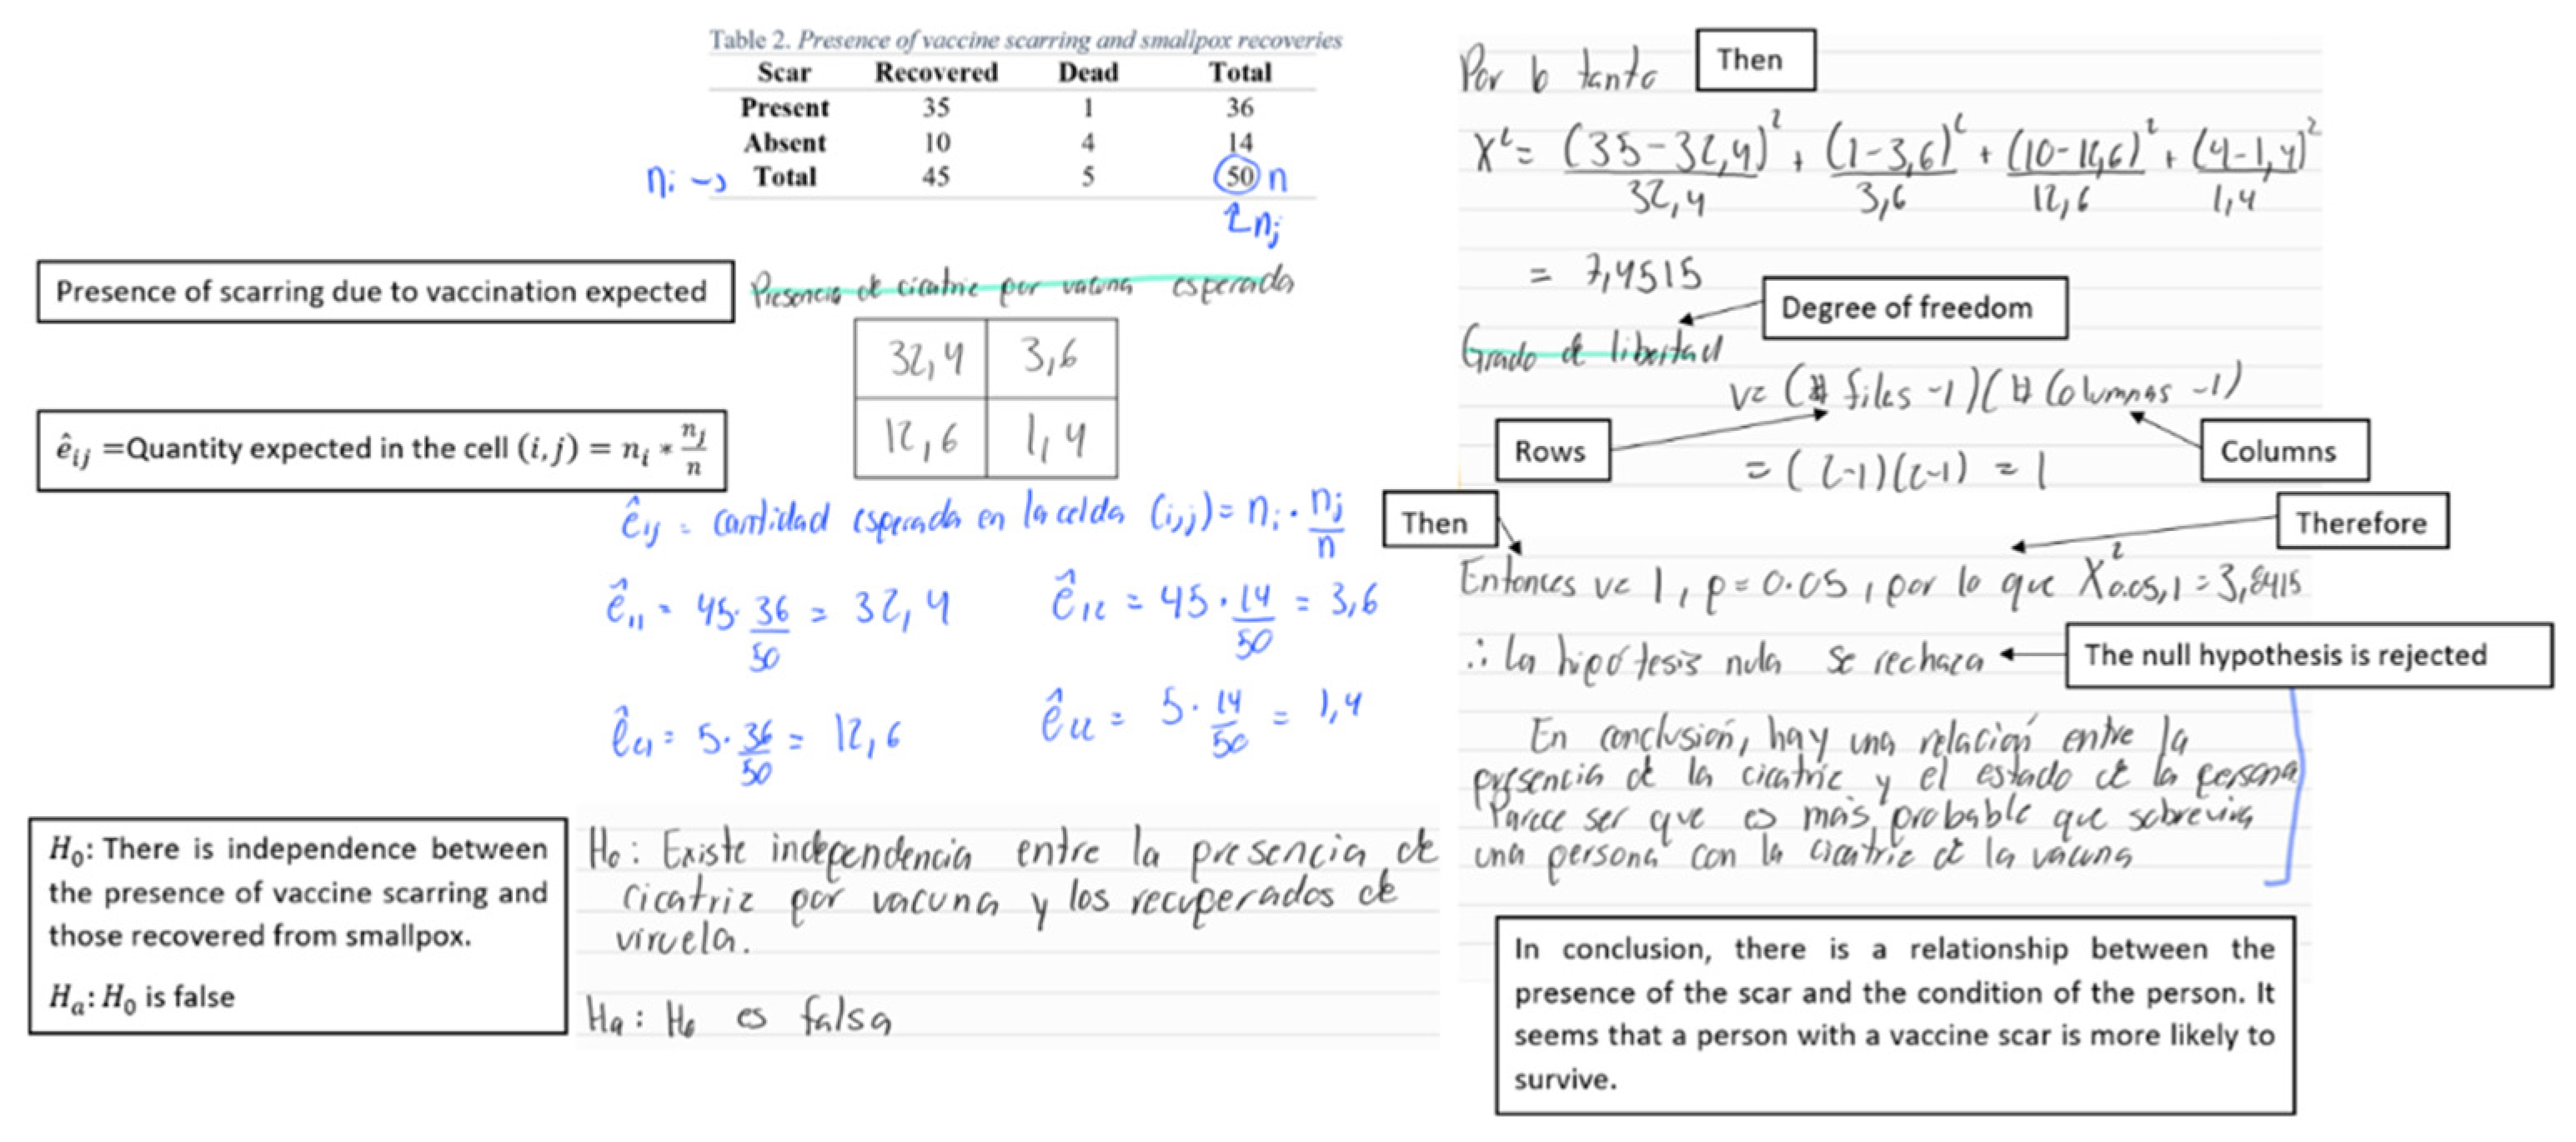 Table 2. Presence of vaccine scarring and smallpox recoveries
Scar Recovered Dead Total
Present 35 1 36
Absent 10 4 14
nᵢ → Total 45 5 50 n
↑ nⱼ
Presence of scarring due to vaccination expected
Presencia de cicatriz por vacuna esperada
32,4 3,6
12,6 1,4
ê_ij =Quantity expected in the cell (i,j) = n_i * n_j/n
ê_ij = cantidad esperada en la celda (i,j) = n_i · n_j/n
ê₁₁ = 45 · 36/50 = 32,4 ê₁₂ = 45 · 14/50 = 3,6
ê₂₁ = 5 · 36/50 = 12,6 ê₂₂ = 5 · 14/50 = 1,4
H₀: There is independence between
the presence of vaccine scarring and
those recovered from smallpox.
Hₐ: H₀ is false
H₀: Existe independencia entre la presencia de
cicatriz por vacuna y los recuperados de
viruela.
Ha: H₀ es falsa
Por lo tanto Then
X² = (35-32,4)²/32,4 + (1-3,6)²/3,6 + (10-12,6)²/12,6 + (4-1,4)²/1,4
= 7,4515
Degree of freedom
Grado de libertad
v= (# filas -1)(# Columnas -1)
Rows Columns
= (2-1)(2-1) = 1
Then Therefore
Entonces v= 1, p= 0.05, por lo que X²0.05,1 = 3,8415
∴ La hipótesis nula se rechaza The null hypothesis is rejected
En conclusión, hay una relación entre la
presencia de la cicatriz y el estado de la persona
Parece ser que es más probable que sobreviva
una persona con la cicatriz de la vacuna
In conclusion, there is a relationship between the
presence of the scar and the condition of the person. It
seems that a person with a vaccine scar is more likely to
survive.